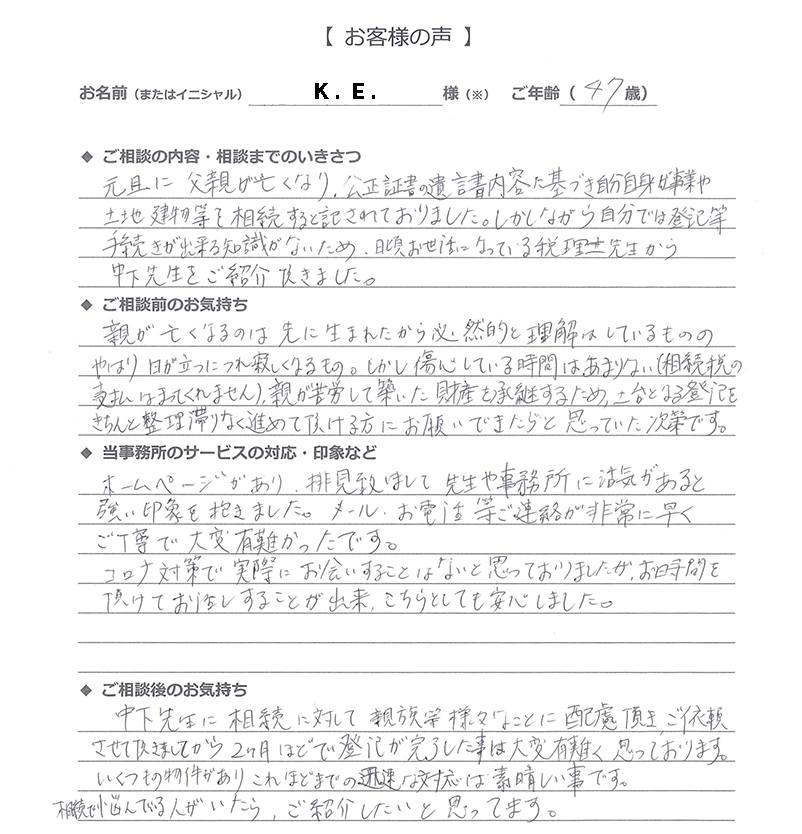 【 お客様の声 】
お名前（またはイニシャル） K. E. 様（※） ご年齢（ 47 歳）
◆ ご相談の内容・相談までのいきさつ
元旦に 父親が亡くなり、公正証書の遺言書内容に基づき自分自身が事業や
土地建物等を相続すると記されておりました。しかしながら自分では登記等
手続きが出来る知識がないため、日頃お世話になっている税理士先生から
中下先生をご紹介頂きました。
◆ ご相談前のお気持ち
親が亡くなるのは先に生まれたから必然的と理解はしているものの
やはり日が立つにつれ寂しくなるもの。しかし傷心している時間は、あまりない（相続税の
支払は待ってくれません）、親が苦労して築いた財産を承継するため、土台となる登記を
きちんと整理滞りなく進めて頂ける方にお願いできたらと思っていた次第です。
◆ 当事務所のサービスの対応・印象など
ホームページがあり、拝見致しまして先生や事務所に活気があると
強い印象を抱きました。メール、お電話等ご連絡が非常に早く
ご丁寧で大変有難かったです。
コロナ対策で実際にお会いすることはないと思っておりましたが、お時間を
頂けてお話しすることが出来、こちらとしても安心しました。
◆ ご相談後のお気持ち
中下先生に相続に対して親族等様々なことに配慮頂き、ご依頼
させて頂きましてから2ヶ月ほどで登記が完了した事は大変有難く思っております。
いくつもの物件がありこれほどまでの迅速な対応は素晴しい事です。
相続で悩んでいる人がいたら、ご紹介したいと思ってます。